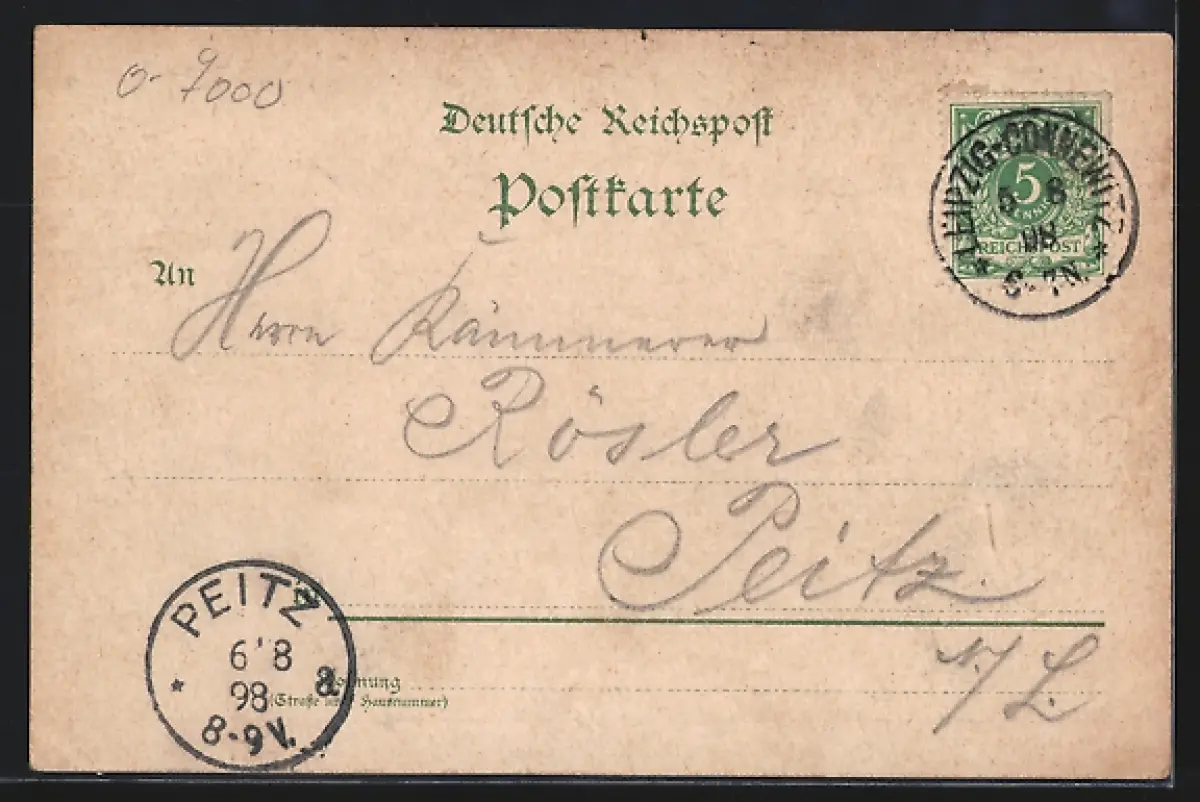 o-7000
Deutsche Reichspost
Postkarte
LEIPZIG-CONNEWITZ
5 8
98
6-7N.
5
REICHSPOST
An
Herrn Kämmerer
Rösler
Peitz
N/L.
PEITZ
6 8
98 a
8-9V.
Wohnung
(Straße und Hausnummer)